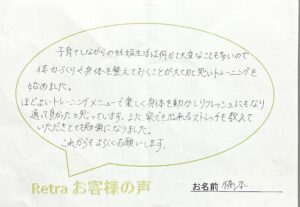 子育てしながらの妊娠生活は何かと大変なことも多いので
体力づくりや身体を整えておくことが大切と思いトレーニングを
始めました。
ほどよいトレーニングメニューで楽しく身体を動かしリフレッシュにもなり
通って良かったと思っています。また家でも出来るストレッチを教えて
いただきとても勉強になりました。
これからもよろしくお願いします。
Retra お客様の声
お名前 橋本